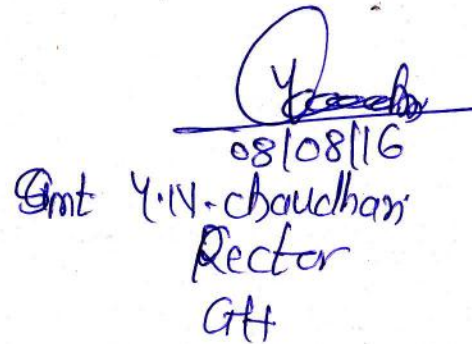 08/08/16
Smt Y.N. chaudhari
Rector
GH